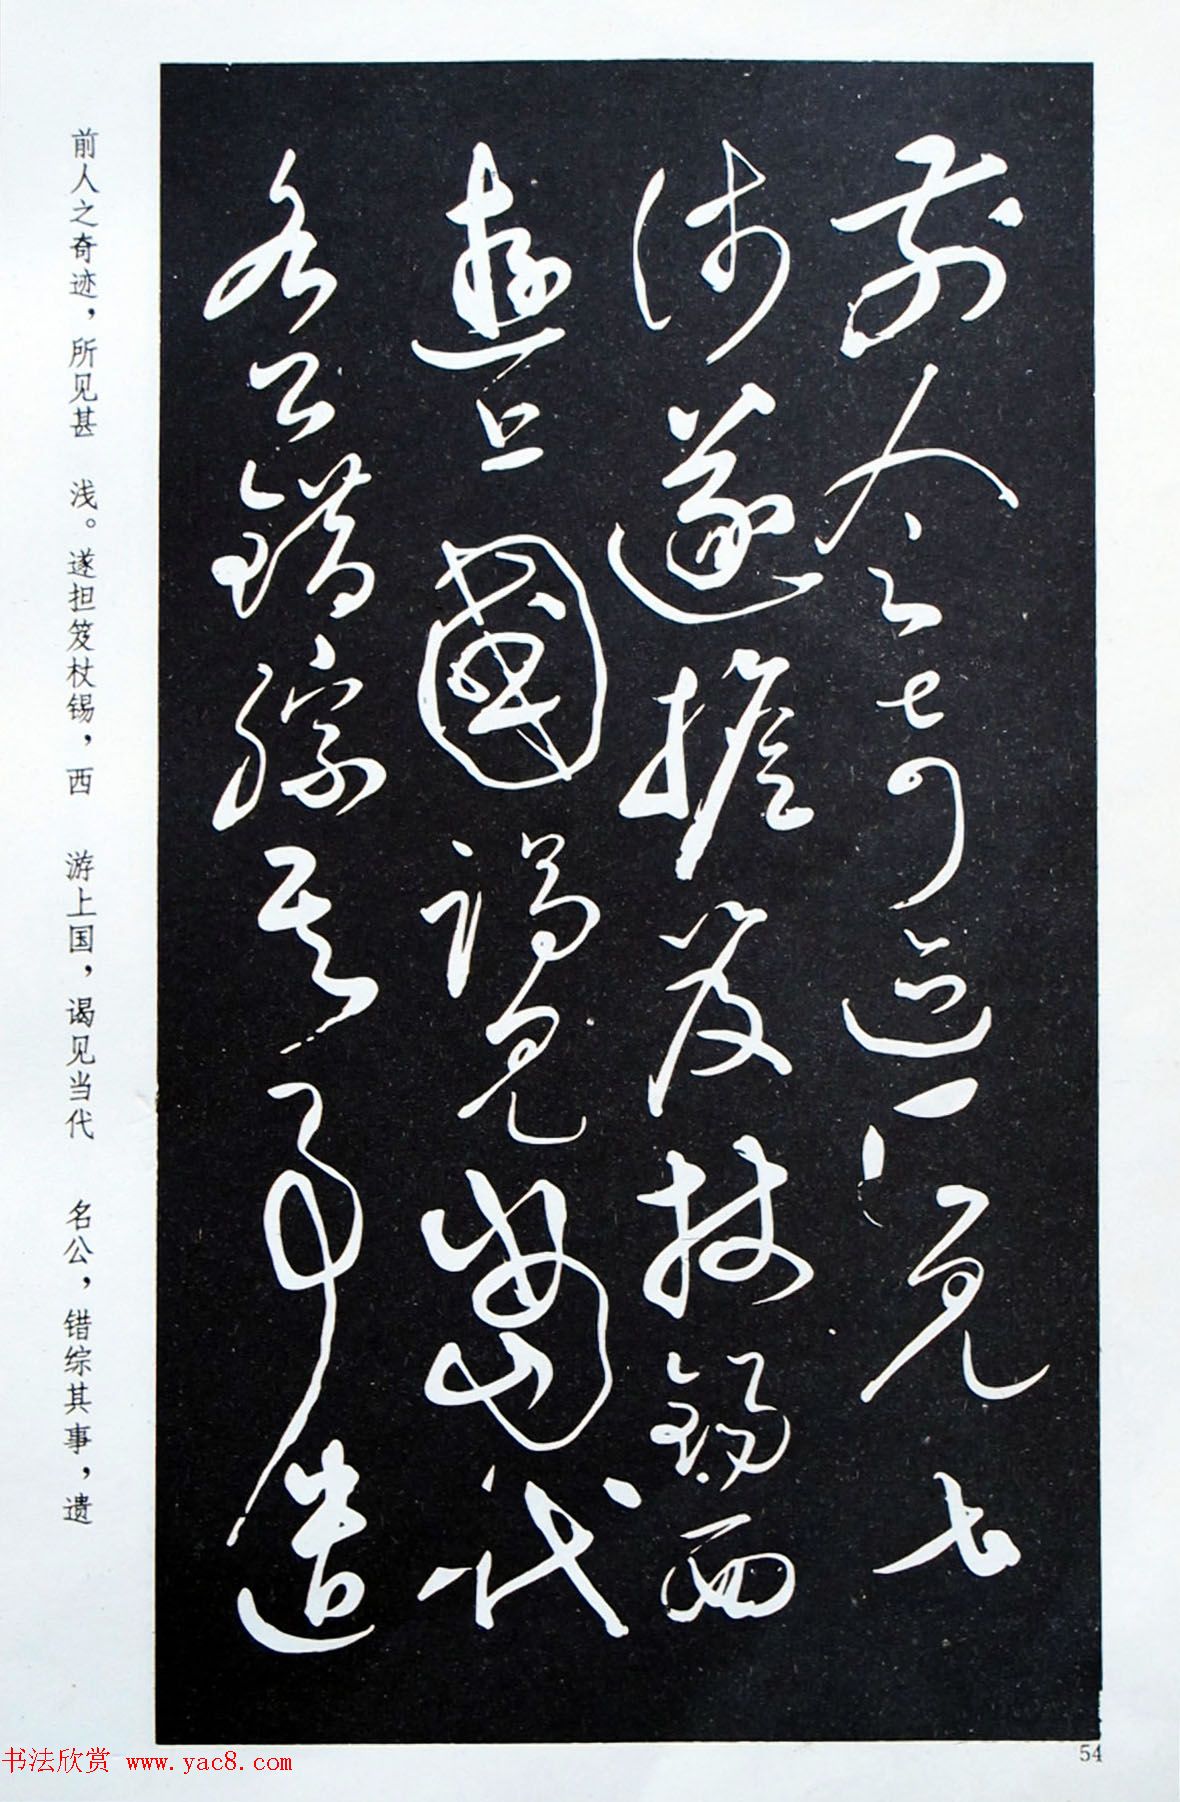 前人之奇迹所見甚
淺遂擔笈杖錫西
遊上國謁見當代
名公錯綜其事遺
前人之奇迹，所见甚　浅。遂担笈杖锡，西　游上国，谒见当代　名公，错综其事，遗
54
书法欣赏 www.yac8.com